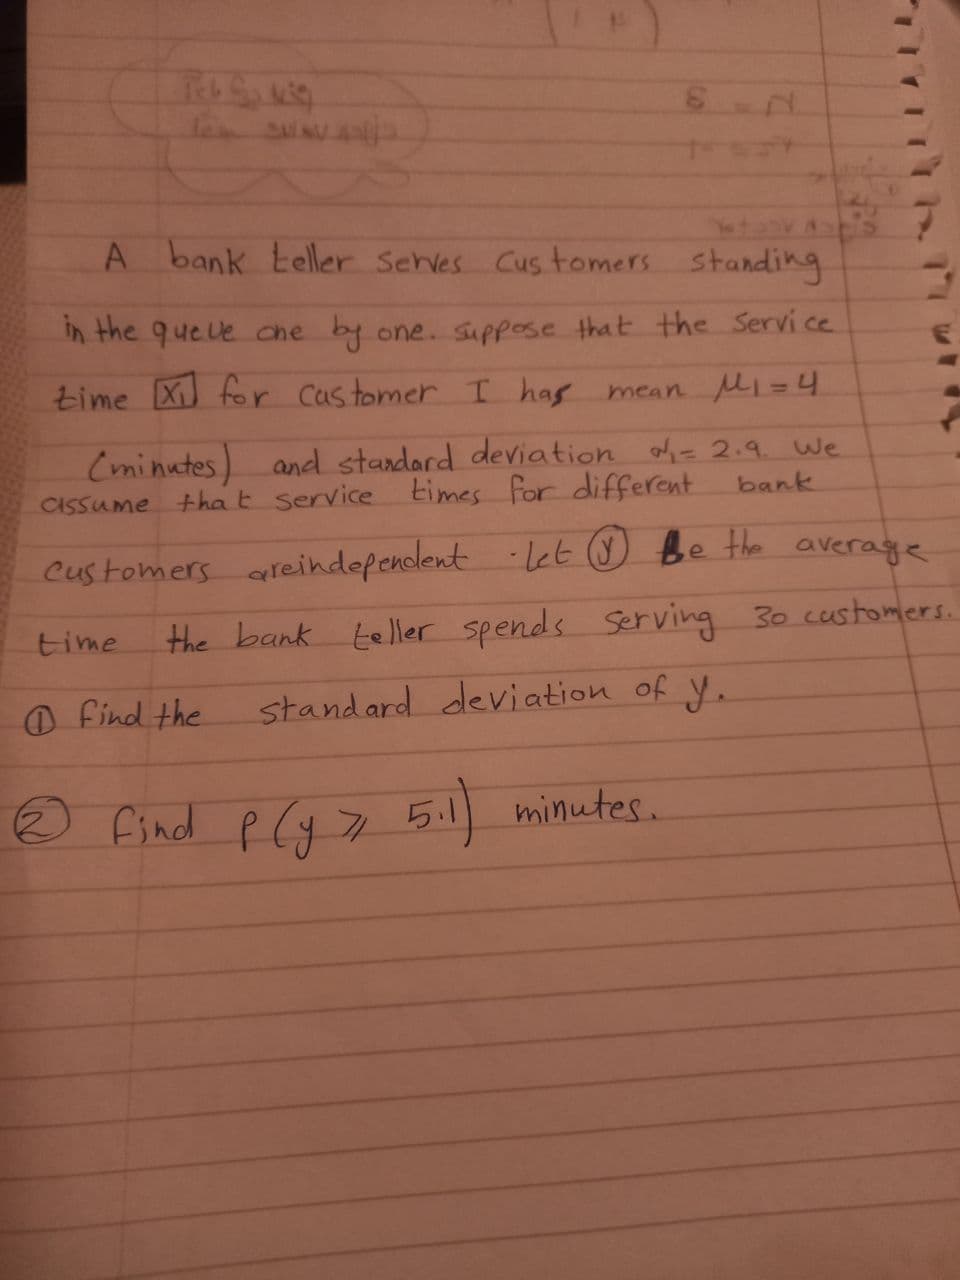 A bank teller serves customers standing
in the queue one by one. suppose that the service
time X₁ for customer I has mean μ₁ = 4
(minutes) and standard deviation σ₁ = 2.9. We
assume that service times for different bank
customers are independent . let y Be the average
time the bank teller spends serving 30 customers.
① find the standard deviation of y.
② find P(y ≥ 5.1) minutes.